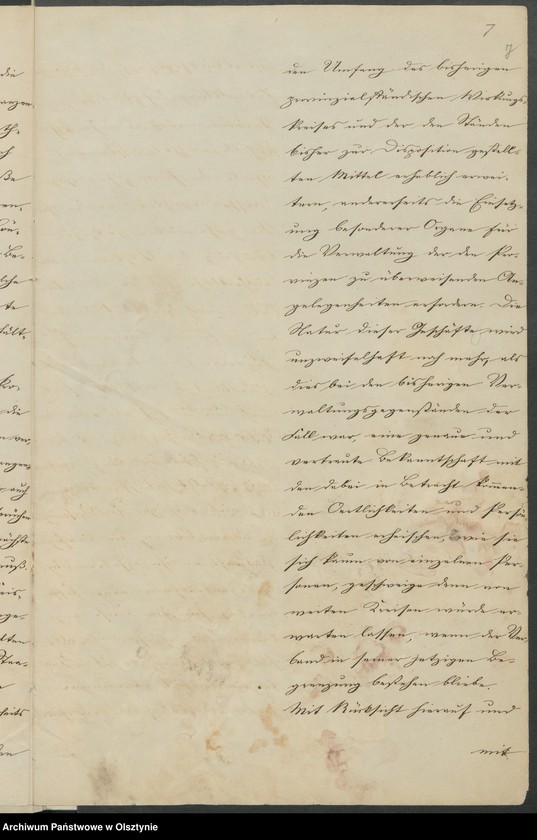 7
den Umfang des bisherigen
provinzialständischen Wirkungs-
kreises und der den Ständen
bisher zur Disposition gestell-
ten Mittel erheblich erwei-
tern, andererseits die Einsetz-
ung besonderer Organe für
die Verwaltung der den Pro-
vinzen zu überweisenden An-
gelegenheiten erfordern. Die
Natur dieser Geschäfte wird
unzweifelhaft noch mehr, als
dies bei den bisherigen Ver-
waltungsgegenständen der
Fall war, eine genaue und
vertraute Bekanntschaft mit
den dabei in Betracht kommen-
den Oertlichkeiten und Persön-
lichkeiten erheischen, wie sie
sich kaum von einzelnen Per-
sonen, geschweige denn von
weiten Kreisen würde er-
warten lassen, wenn der Ver-
band in seiner jetzigen Be-
grenzung bestehen bliebe.
Mit Rücksicht hierauf und
mit
Archiwum Państwowe w Olsztynie